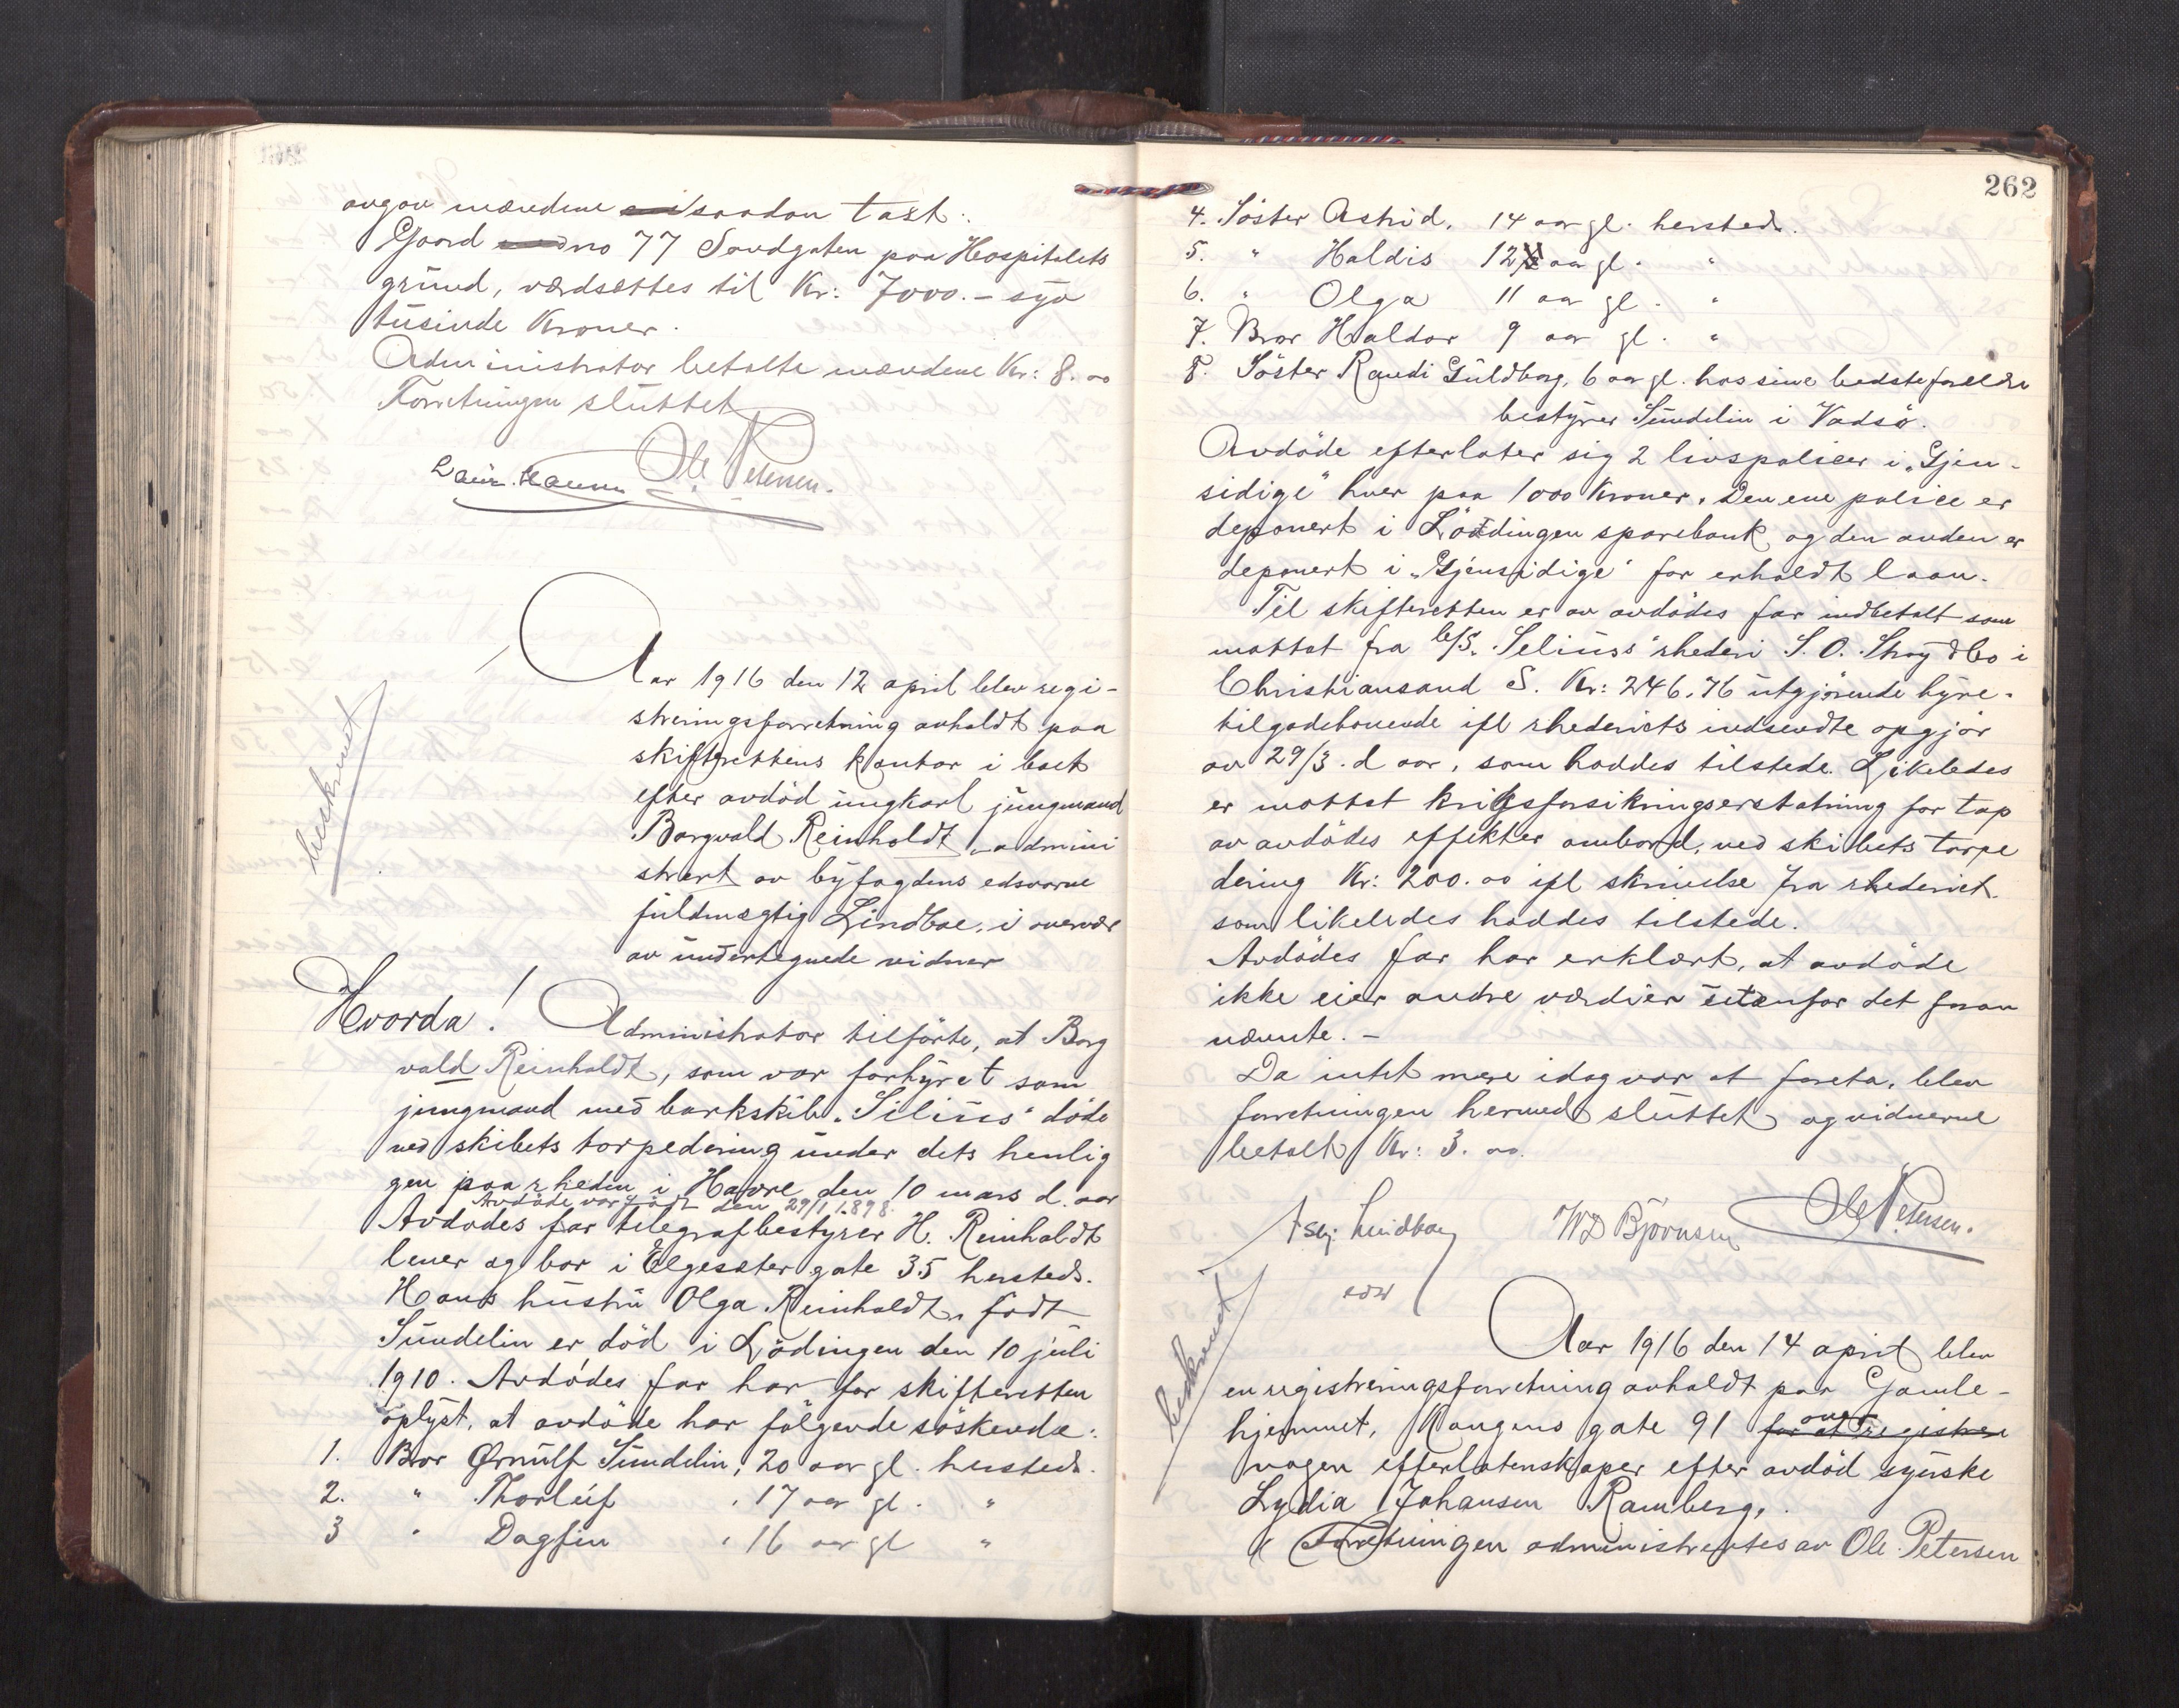 avgav mændene saadan takst.
Gaard no 77 Sandgaten paa Hospitalets
grund, værdsættes til Kr: 7000.- syv
tusinde Kroner.
Administrator betalte mændene Kr: 8.00
Forretningen sluttet
Ole Petersen.
beskrevet
Aar 1916 den 12 april blev regi-
streringsforretning avholdt paa
skifterettens kontor i boet
efter avdöd ungkarl jungmand
Borgvald Reinholdt, admini
strert av byfogdens edsvorne
fuldmægtig Lindboe, i overvær
av undertegnede vidner
Hvorda! Administrator tilförte, at Borg
vald Reinholdt, som var forhyret som
jungmand med barkskib "Silius" döde
ved skibets torpedering under dets henlig
gen paa rheden i Havre den 10 mars d. aar
Avdöde var född den 29/1 1898.
Avdödes far telegrafbestyrer H. Reinholdt
lever og bor i Elgesæter gate 35 hersteds.
Hans hustru Olga Reinholdt, födt
Sundelin er död i Lödingen den 10 juli
1910. Avdödes far har for skifteretten
oplyst, at avdöde har fölgende söskende:
1. Bror Ørnulf Sundelin, 20 aar gl. hersteds.
2. " Thorleif , 17 aar gl. "
3 " Dagfin , 16 aar gl "
262
4. Söster Astrid, 14 aar gl. hersteds.
5. " Haldis 12 aar gl. "
6. " Olga 11 aar gl. "
7. Bror Haldor 9 aar gl. "
8. Söster Randi Guldborg, 6 aar gl. hos sine bedsteforeldre
bestyrer Sundelin i Vadsö.
Avdöde efterlater sig 2 livspolicer i "Gjen-
sidige" hver paa 1000 Kroner. Den ene police er
deponert i Lödingen sparebank og den anden er
deponert i "Gjensidige" for erholdt laan.
Til skifteretten er av avdödes far indbetalt som
mottat fra b/s. "Seliuss" rhederi S. O. Stray & Co i
Christiansand S. Kr: 246,76 utgjörende hyre-
tilgodehavende ifl rhederiets indsendte opgjör
av 29/3. d aar, som haddes tilstede. Likeledes
er mottat krigsforsikringserstatning for tap
av avdödes effekter ombord, ved skibets torpe
dering Kr: 200.00 ifl skrivelse fra rhederiet
som likeledes haddes tilstede.
Avdödes far har erklært, at avdöde
ikke eier andre værdier utenfor det foran
nævnte. -
Da intet mere idag var at foreta, blev
forretningen hermed sluttet og vidnerne
betalt Kr: 3.00
Lindboe WD Björnsen Ole Petersen.
edsv
beskrevet
Aar 1916 den 14 april blev
en registreringsforretning avholdt paa Gamle-
hjemmet, Kongens gate 91 for at registrere
over
efterlatenskaper efter avdöd syerske
Lydia Johansen Ramberg.
Forretningen administrertes av Ole Petersen